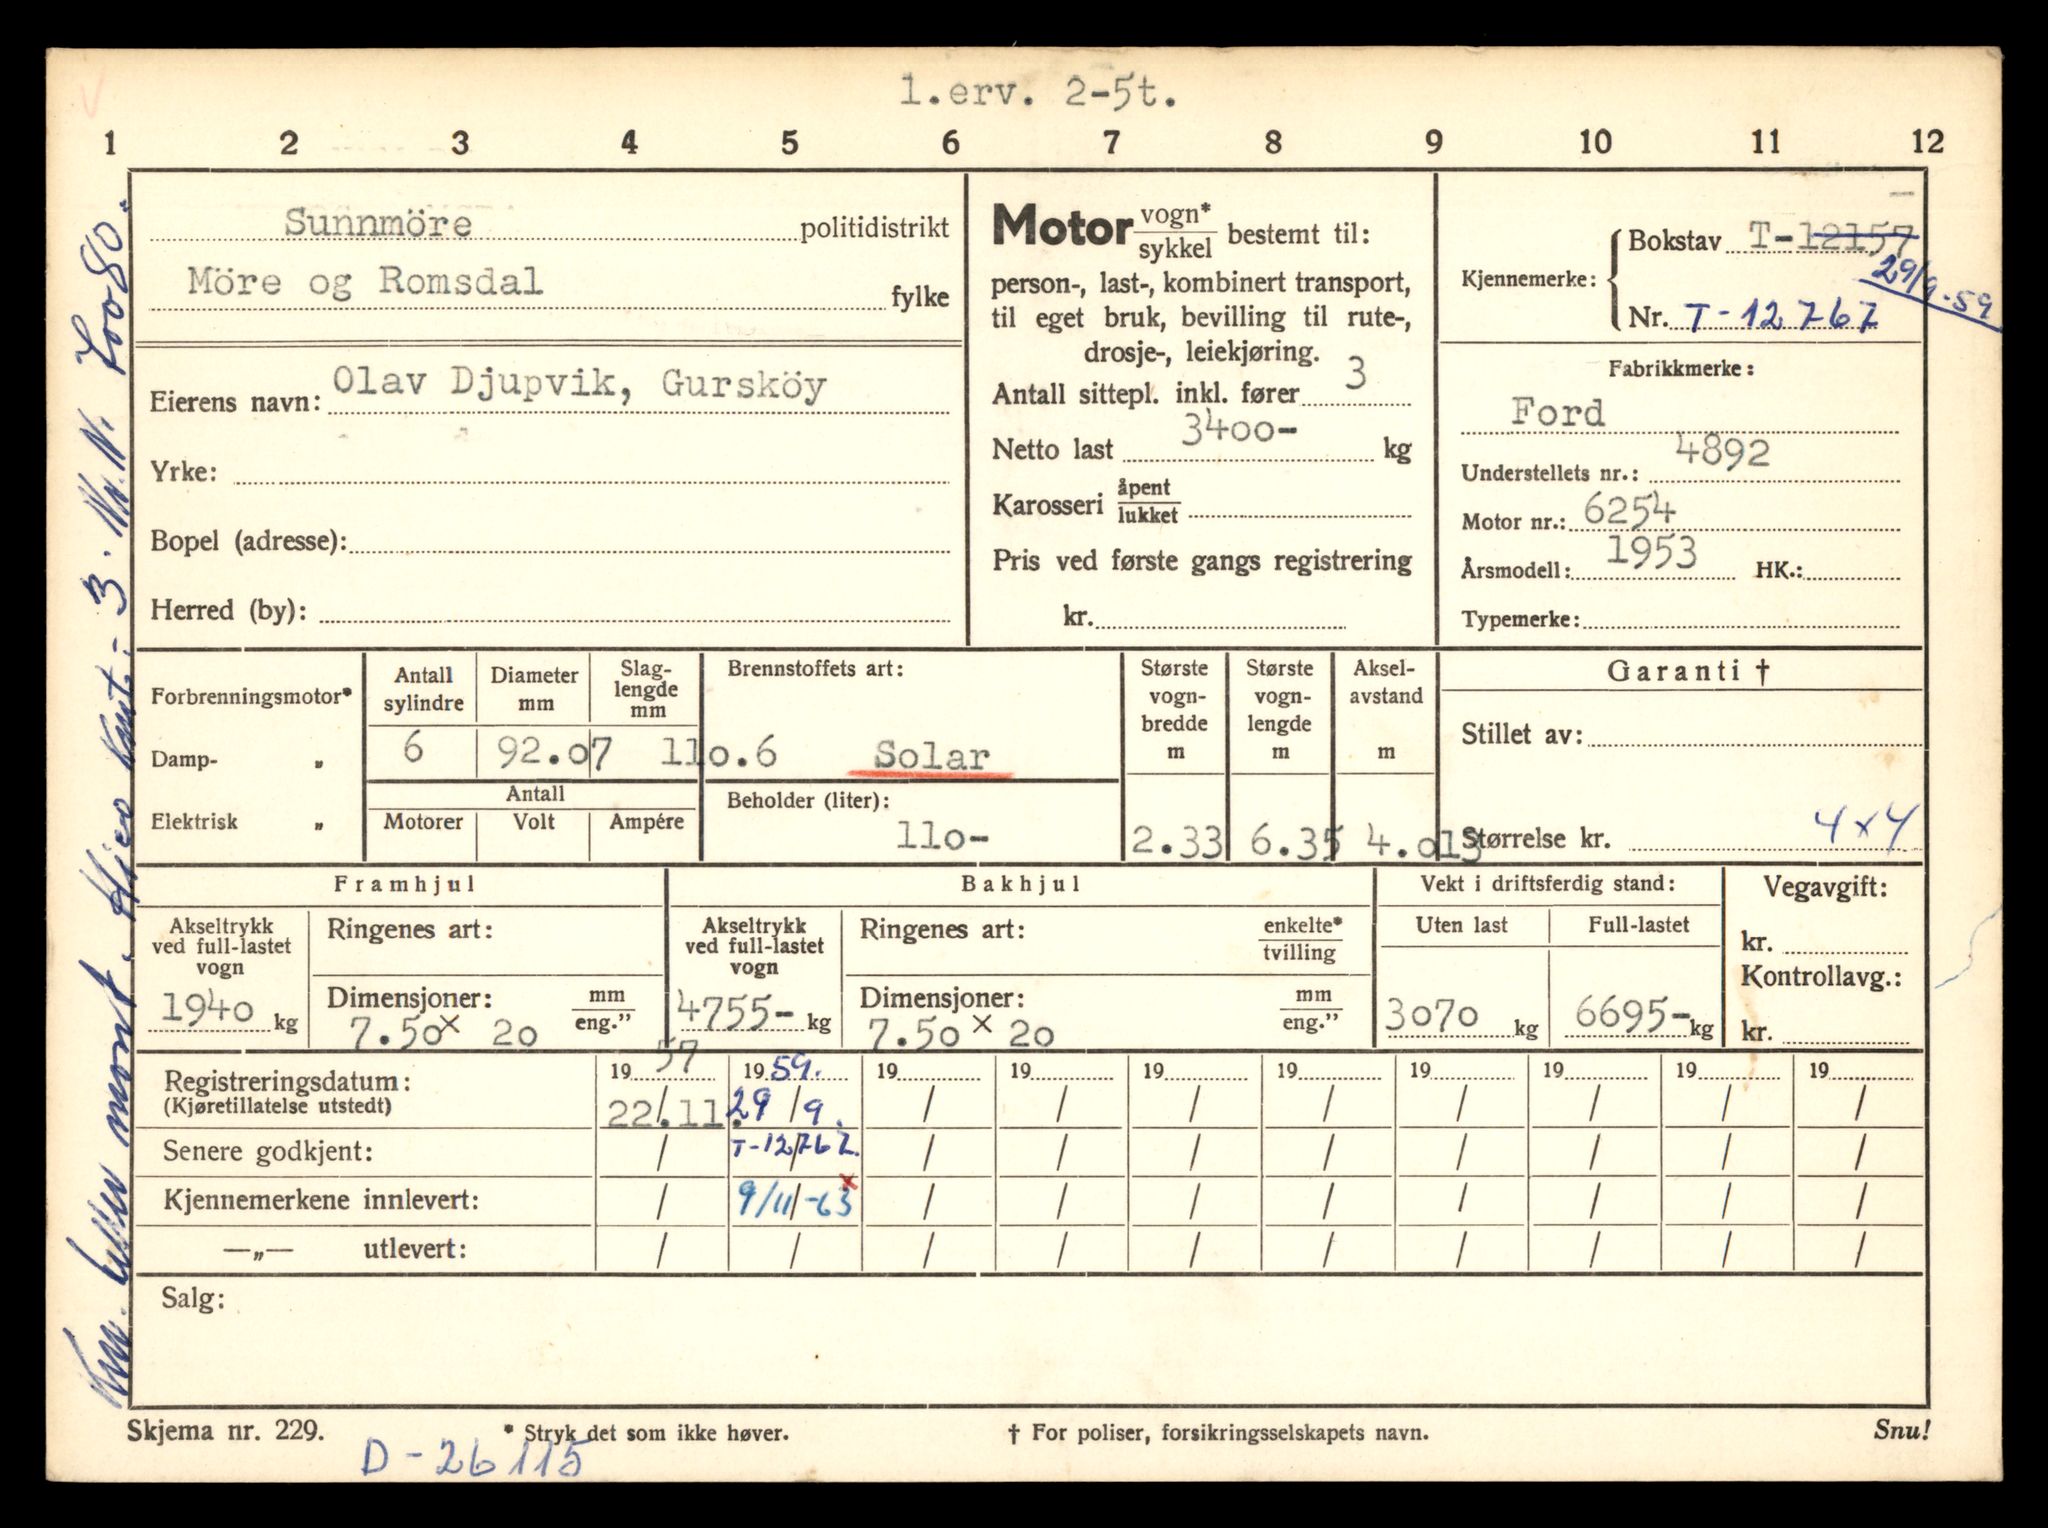 1.erv. 2-5t.
1 2 3 4 5 6 7 8 9 10 11 12
Sunnmöre politidistrikt
Möre og Romsdal fylke
Eierens navn: Olav Djupvik, Gursköy
Yrke:
Bopel (adresse):
Herred (by):
Motor vogn* / sykkel bestemt til:
person-, last-, kombinert transport,
til eget bruk, bevilling til rute-,
drosje-, leiekjøring.
Antall sittepl. inkl. fører 3
Netto last 3400- kg
Karosseri åpent / lukket
Pris ved første gangs registrering
kr.
Kjennemerke: Bokstav T-12157
29/9-59
Nr. T-12767
Fabrikkmerke:
Ford
Understellets nr.: 4892
Motor nr.: 6254
Årsmodell: 1953 HK.:
Typemerke:
Forbrenningsmotor*
Damp- „
Elektrisk „
Antall sylindre Diameter mm Slag-lengde mm
6 92.07 110.6
Antall
Motorer Volt Ampére
Brennstoffets art:
Solar
Beholder (liter):
110-
Største vogn-bredde m Største vogn-lengde m Aksel-avstand m
2.33 6.35 4.013
Garanti †
Stillet av:
Størrelse kr. 4x4
Framhjul
Akseltrykk ved full-lastet vogn
1940 kg
Ringenes art:
Dimensjoner: mm / eng."
7.50 x 20
Bakhjul
Akseltrykk ved full-lastet vogn
4755- kg
Ringenes art: enkelte* / tvilling
Dimensjoner: mm / eng."
7.50 x 20
Vekt i driftsferdig stand:
Uten last Full-lastet
3070 kg 6695- kg
Vegavgift:
kr.
Kontrollavg.:
kr.
Registreringsdatum: 19 57 19 59. 19 19 19 19 19 19 19 19
(Kjøretillatelse utstedt) 22/.11. 29/9. / / / / / / / /
Senere godkjent: / T-12767. / / / / / / / /
Kjennemerkene innlevert: / 9/11-63 x / / / / / / / /
—„— utlevert: / / / / / / / / / /
Salg:
Skjema nr. 229. * Stryk det som ikke høver. † For poliser, forsikringsselskapets navn. Snu!
D-26115
mont.